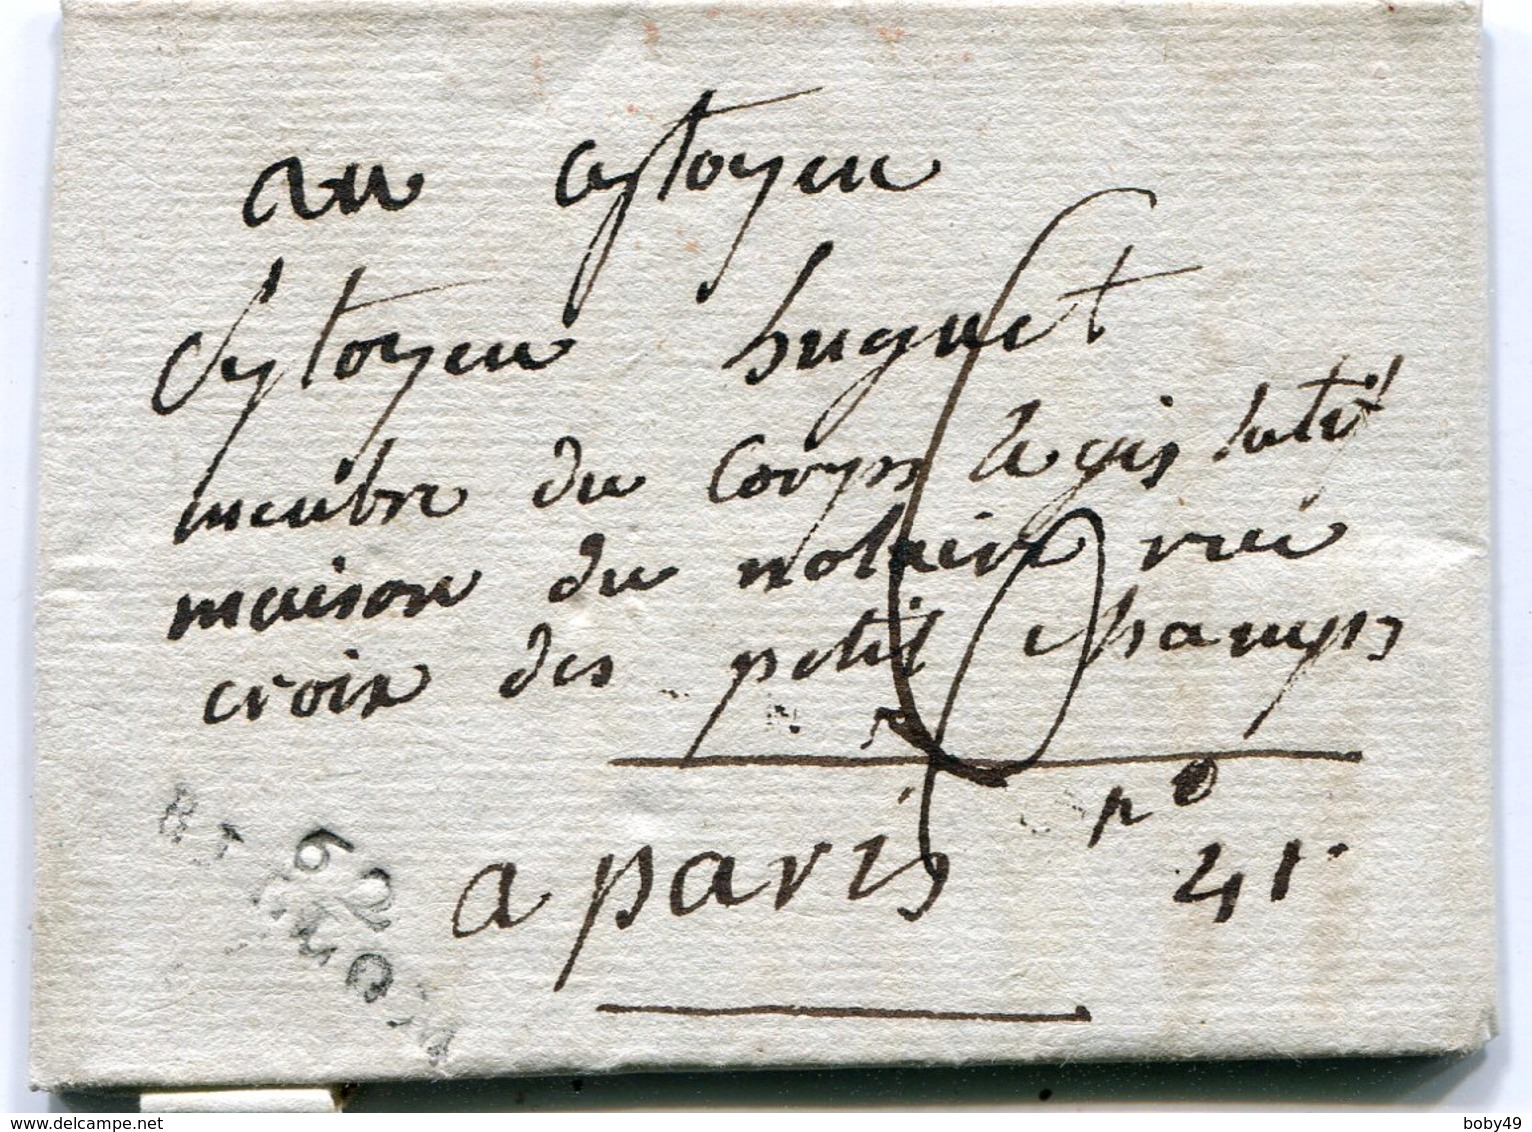 au Cytoyen
Cytoyen huguet
meubre du Corps legis latif
maison du notaire rue
croix des petit champs
a paris
no
41.
62
delcampe.net
boby49